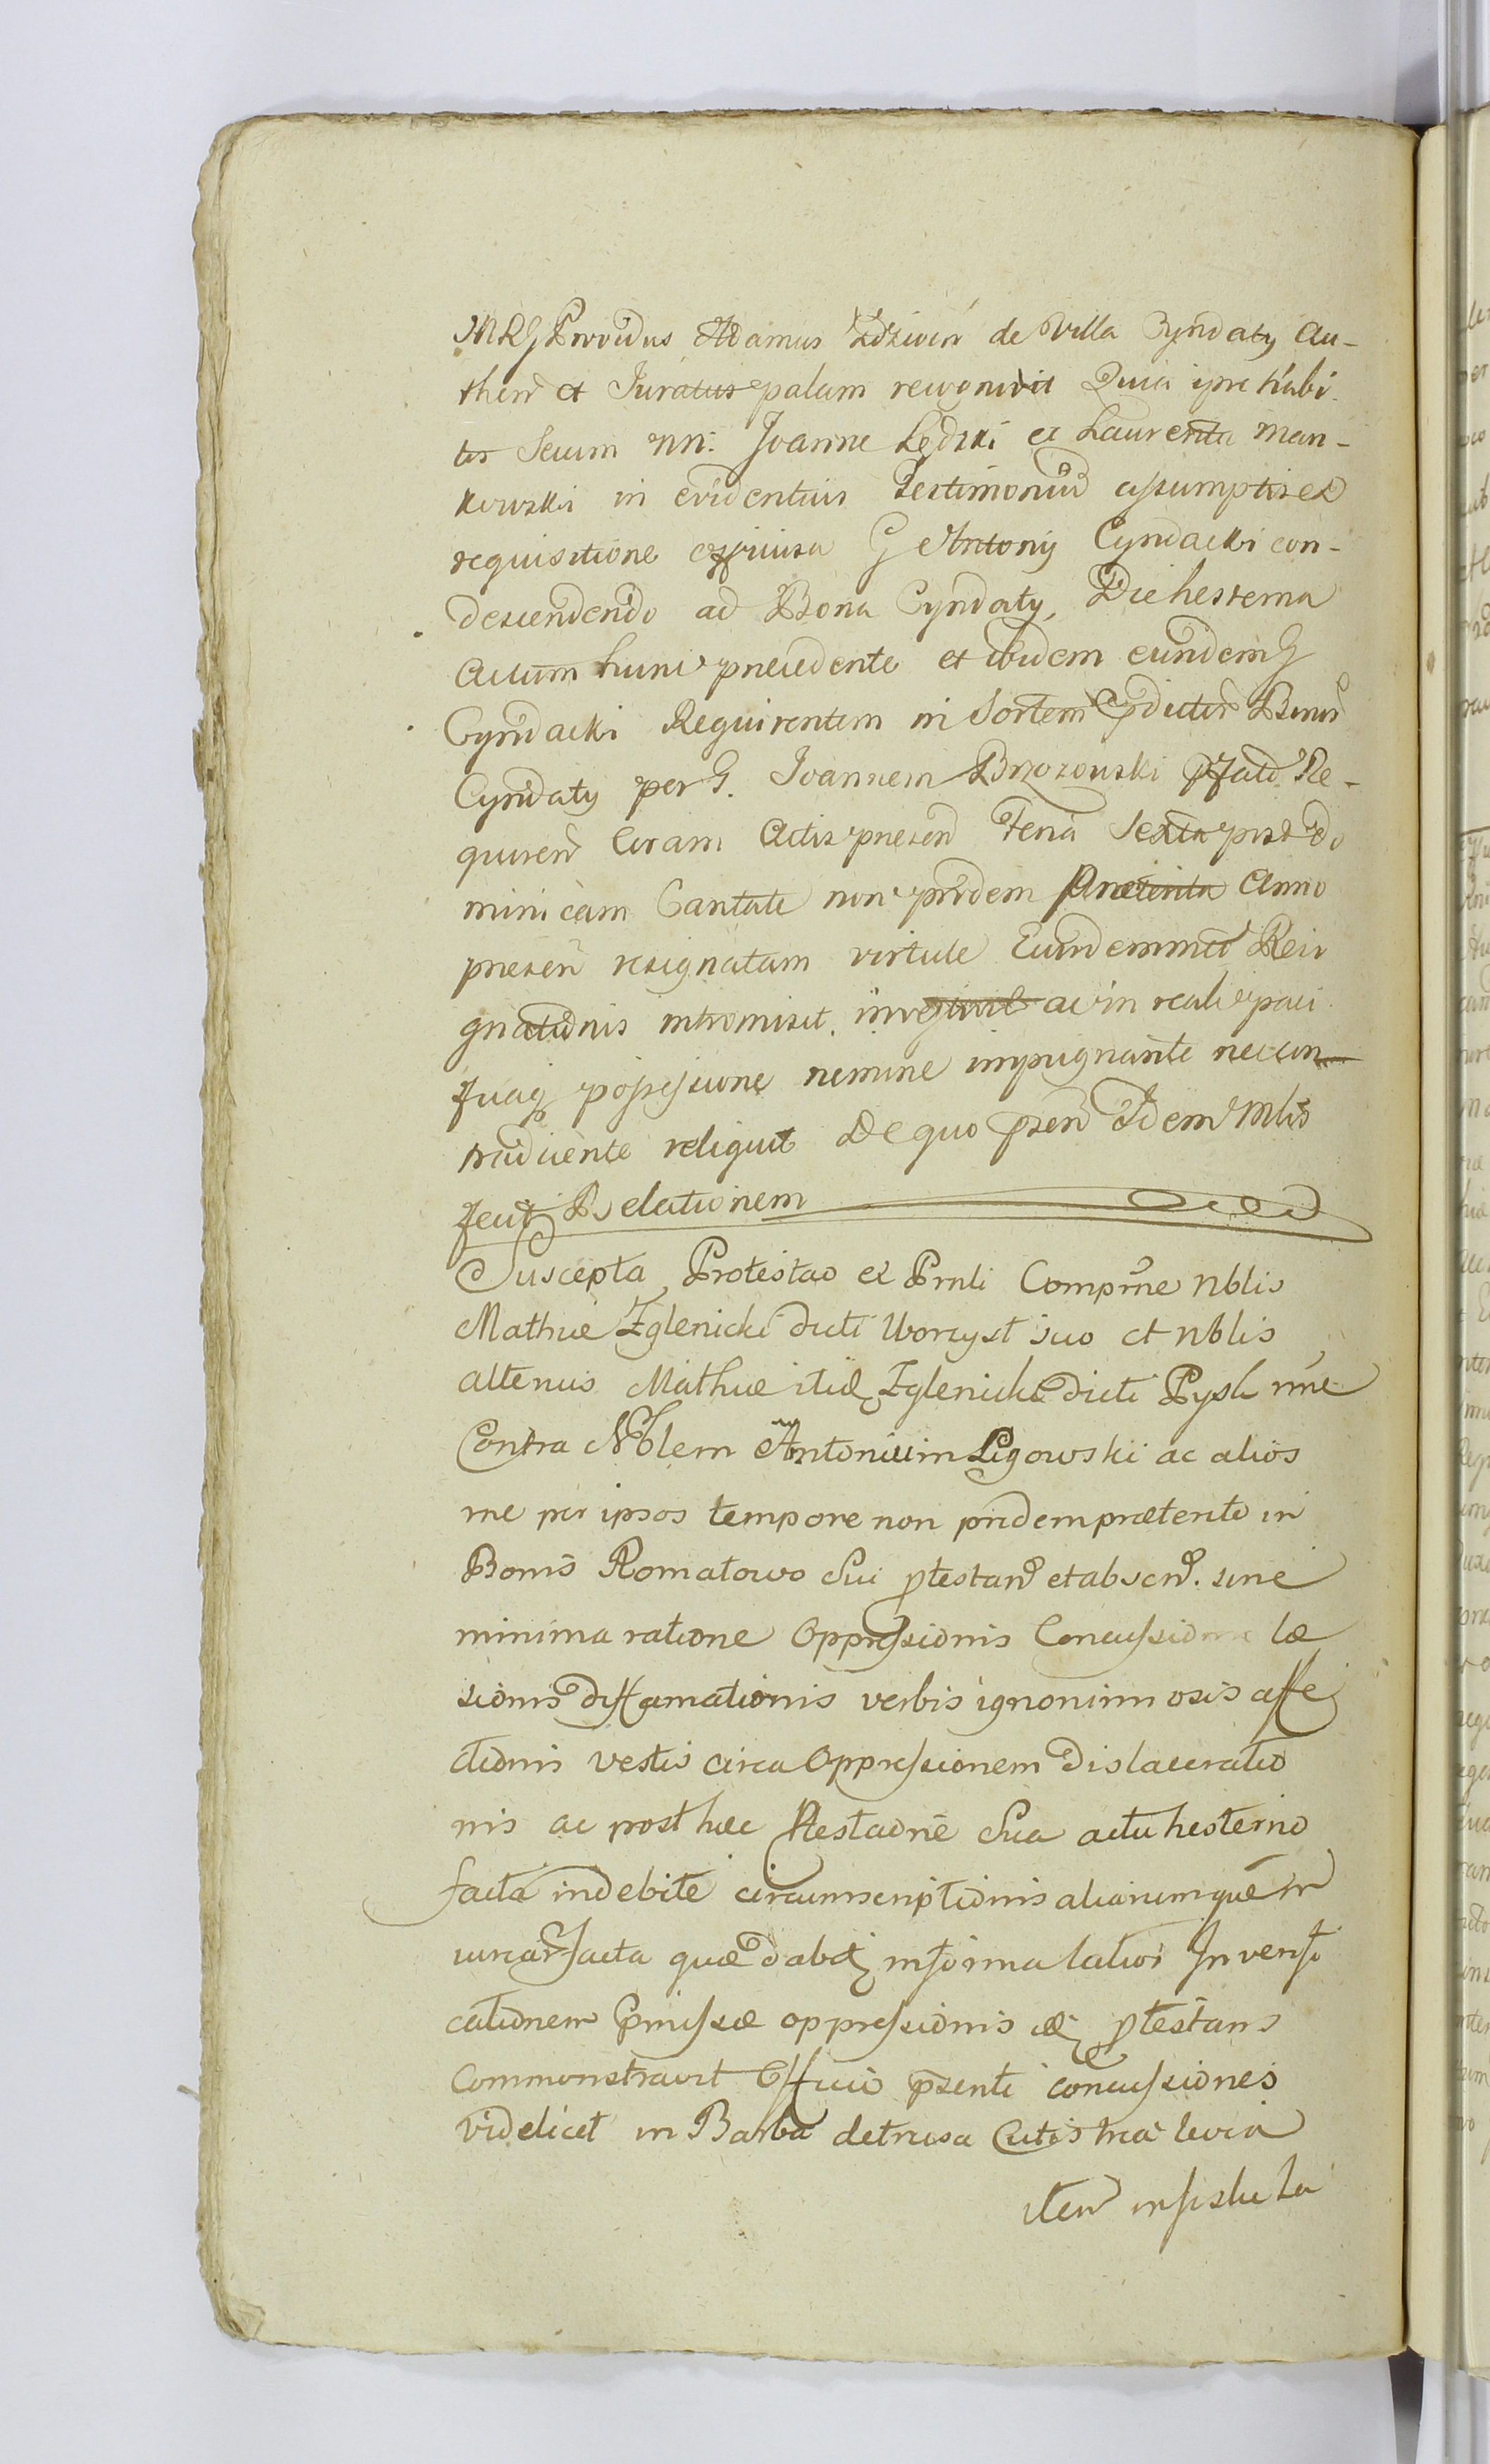 MRG Providus Adamus Zdziven de Villa Cyndaty Au-
then et Juratus palam recognovit Quia ipse habi-
tis secum nn: Joanne Ledzki et Laurentio Man-
kowski in evidentius Testimonium assumptis ex
requisitione G Antonij Cyndacki con-
descendendo ad Bona Cyndaty, Die hesterna
Actum hunc precedente et ibidem eundem G
Cyndacki Requirentem in Sortem Bonor
Cyndaty per G. Joannem Brzozowski pfatd Re-
quiren Coram Actis presen Feria Sexta post Do
minicam Cantate non pridem Praeterita Anno
presen resignatam virtute Eiusdemmet Resi
gnationis intromisit, investivit ac in reali paci
ficaq possessione nemine impugnante nec con
tradicente reliquit De quo psen Idem Mlis
fecit Relationem
Suscepta Protestao et Prnli Comprne Nblis
Mathiæ Zglenicki dicti Worcyst suo et nblis
alterius Mathiæ itidq Zglenicki dicti Pysk nne
Contra Nblem Antonium Ligowski ac alios
me per ipsos tempore non pridem præterito in
Bonis Romatowo Sui ptestan et abscn. sine
minima ratione Oppressionis Concussionis læ
sionis diffamationis verbis ignonimiosis affe
ctionis vestis circa Oppressionem dislaceratio
nis ac post hæc Ptestaone Sua actu hesterno
facta indebite circumscriptionis aliarumque in
iuriar facta quæ dabit in forma latiori In verifi
cationem pmissæ oppressionis idq ptestans
Commonstravit Officio psenti concussiones
videlicet in Barba detrusa Cutis tria levia
iten in fistula